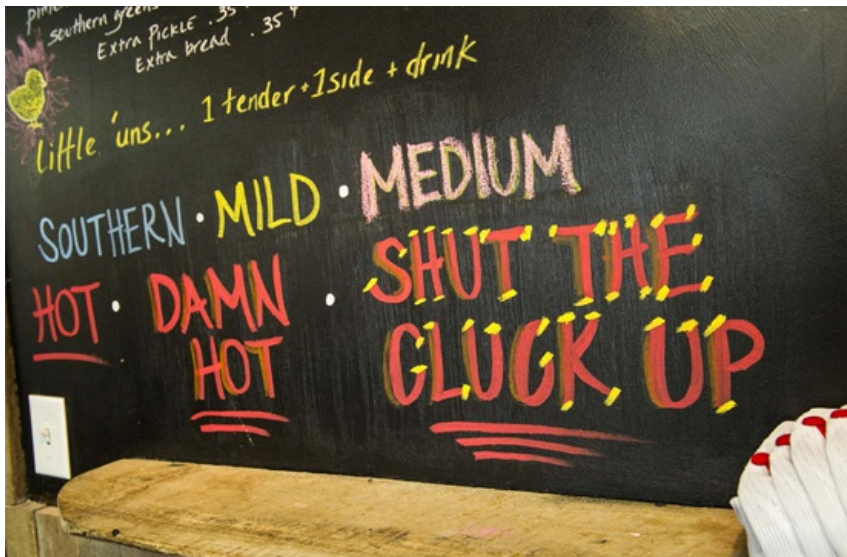 southern greens
Extra Pickle .35¢
Extra bread .35¢
little 'uns... 1 tender + 1 side + drink
SOUTHERN • MILD • MEDIUM
HOT • DAMN HOT • SHUT THE CLUCK UP